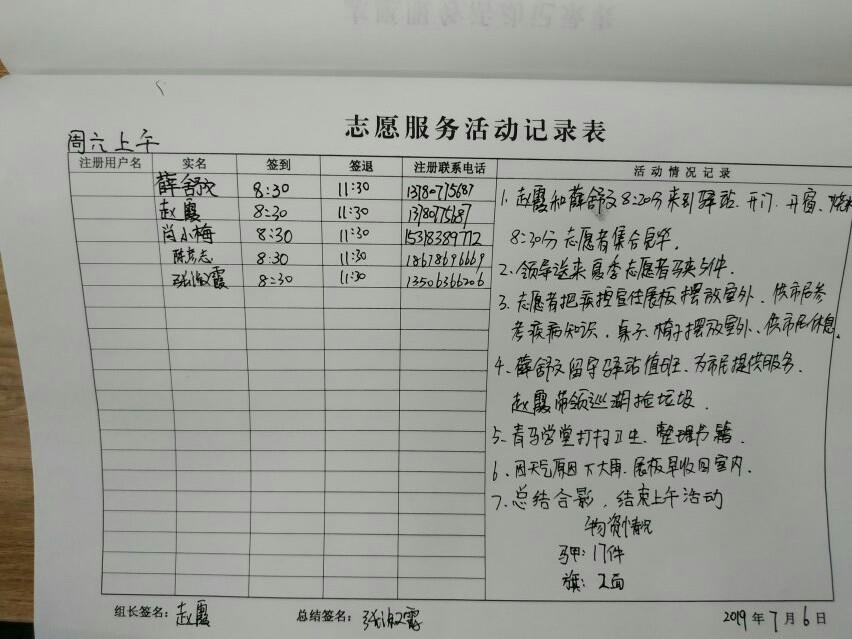 志愿服务活动记录表
周六上午
注册用户名 实名 签到 签退 注册联系电话 活动情况记录
薛舒文 8:30 11:30 13780775687
赵霞 8:30 11:30
肖小梅 8:30 11:30 15318389712
陈彦志 8:30 11:30 18678696669
张淑霞 8:30 11:30 13506366206
1、赵霞和薛舒文8:20分来到驿站、开门、开窗、烧水
8:30分志愿者集合完毕。
2、领导送来夏季志愿者马夹5件.
3、志愿者把疾控宣传展板摆放室外、供市民参
考疾病知识、桌子、椅子摆放室外、供市民休息.
4、薛舒文留守驿站值班、为市民提供服务.
赵霞带领巡湖捡垃圾.
5、青马学堂打扫卫生、整理书籍.
6、因天气原因下大雨、展板早收回室内.
7、总结合影、结束上午活动
物资情况
马甲:17件
旗:2面
组长签名:赵霞 总结签名:张淑霞 2019年7月6日